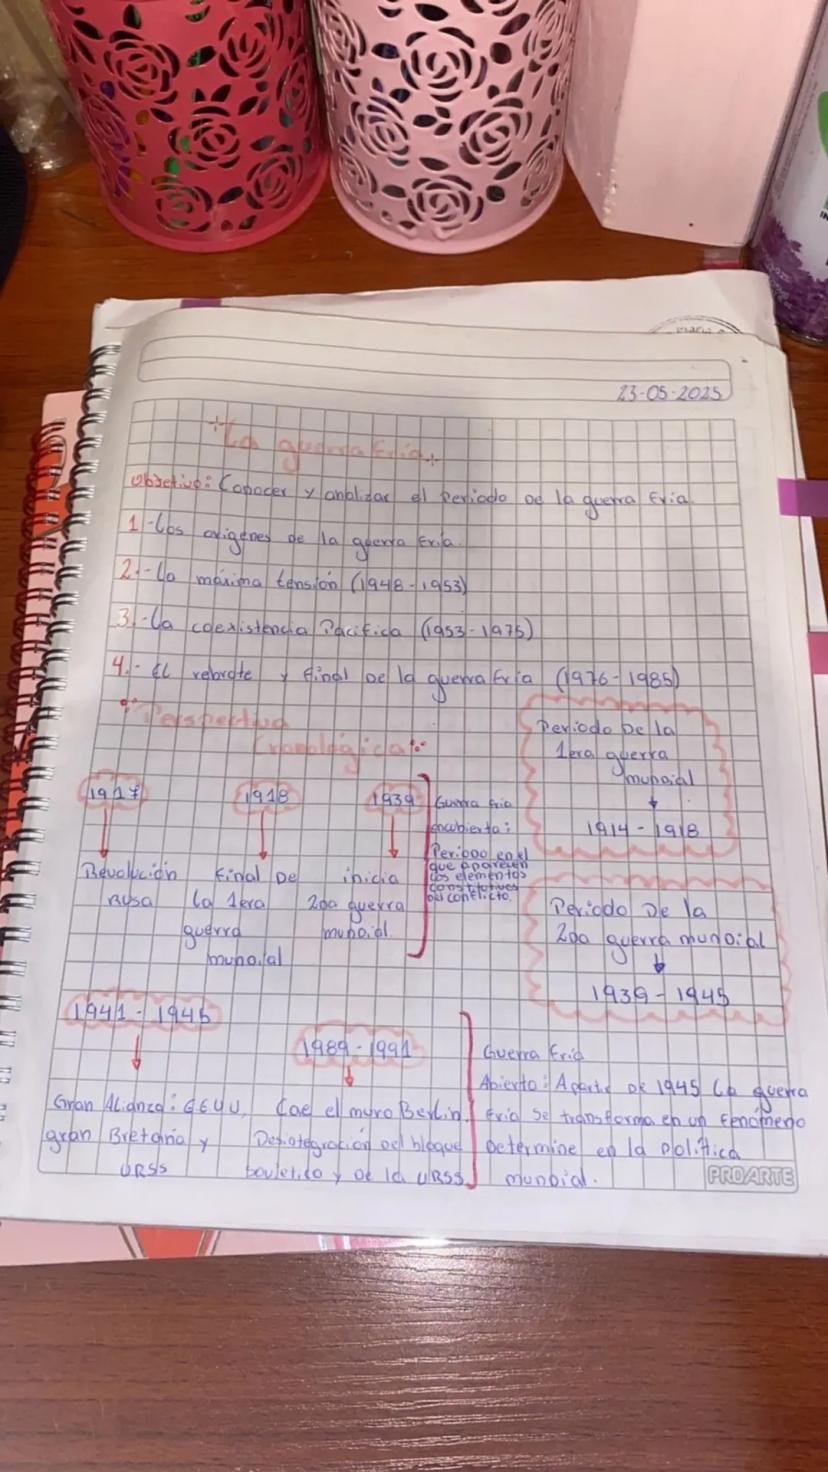 23-05-2025
La guerra Fría
Objetivo: Conocer y analizar el Periodo De la guerra Fría
1-Los orígenes de la guerra Fría.
2.-La máxima tensión (1948-1953)
3.-La coexistencia Pacifica (1953-1975)
4.- El rebrote y final De la guerra Fría (1976-1985)
Perspectiva
Cronológica
Periodo De la
1era guerra
mundial
1914 - 1918
1917
1918
1939
Revolución
Rusa
Final De
la 1era
guerra
mundial
inicia
2da guerra
mundial.
Guerra Fría
encubierta:
Periodo en el
que aparecen
los elementos
constitutivos
del conflicto.
Periodo De la
2da guerra mundial
1939-1945
1941-1945
1989-1991
Gran Alianza: EEUU,
gran Bretaña y
URSS
Cae el muro Berlín
Desintegración del bloque
sovietico y de la URSS
Guerra Fría
Abierta: A partir De 1945 La guerra
Fría se transforma en un fenómeno
Determine en la política
mundial.
PROARTE